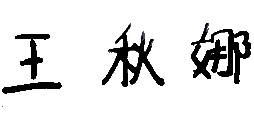 王秋娜